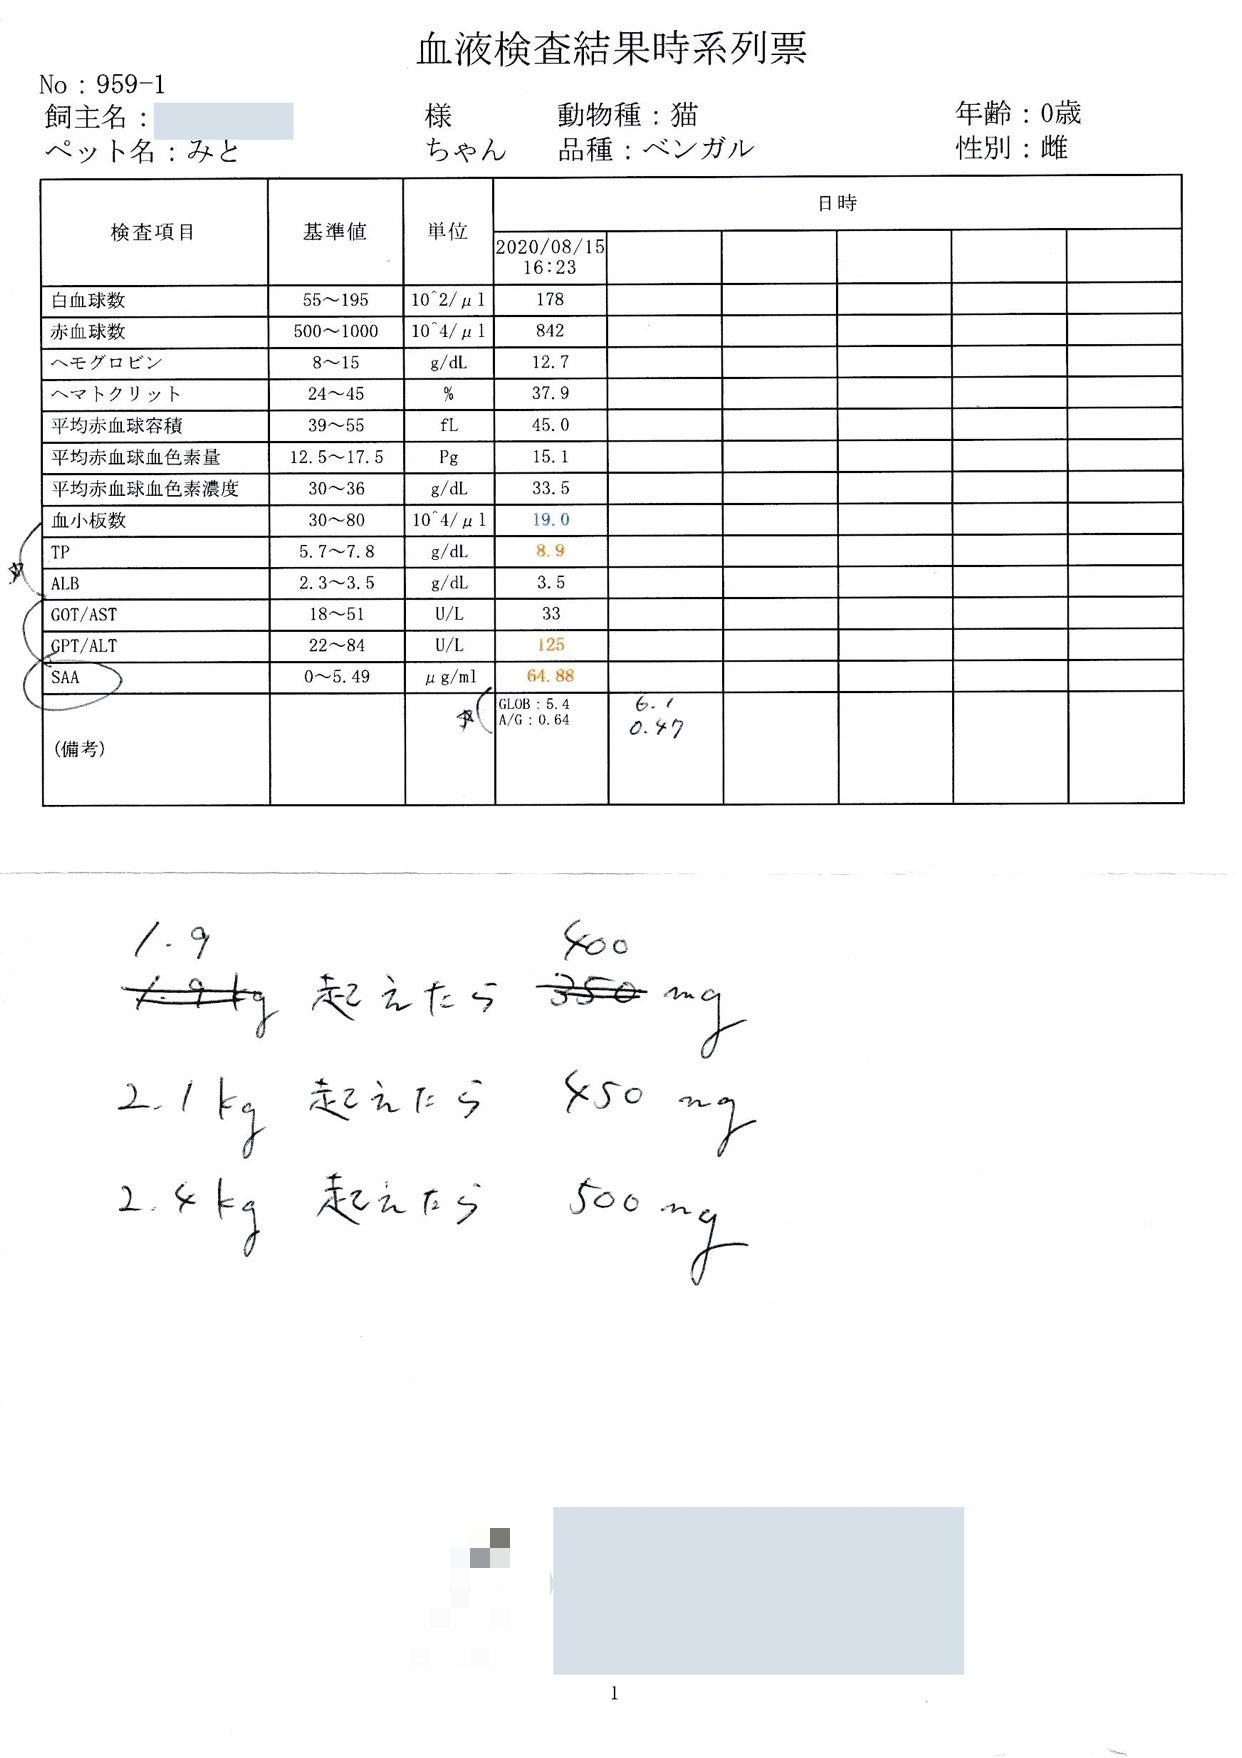 血液検査結果時系列票
No：959-1
飼主名： 様 動物種：猫 年齢：0歳
ペット名：みと ちゃん 品種：ベンガル 性別：雌
検査項目 基準値 単位 日時
2020/08/15
16:23
白血球数 55～195 10^2/μl 178
赤血球数 500～1000 10^4/μl 842
ヘモグロビン 8～15 g/dL 12.7
ヘマトクリット 24～45 % 37.9
平均赤血球容積 39～55 fL 45.0
平均赤血球血色素量 12.5～17.5 Pg 15.1
平均赤血球血色素濃度 30～36 g/dL 33.5
血小板数 30～80 10^4/μl 19.0
TP 5.7～7.8 g/dL 8.9
ALB 2.3～3.5 g/dL 3.5
GOT/AST 18～51 U/L 33
GPT/ALT 22～84 U/L 125
SAA 0～5.49 μg/ml 64.88
GLOB：5.4 6.1
A/G：0.64 0.47
(備考)
1.9 400
1.9kg 起えたら 350 mg
2.1kg 起えたら 450 mg
2.4kg 起えたら 500 mg
1